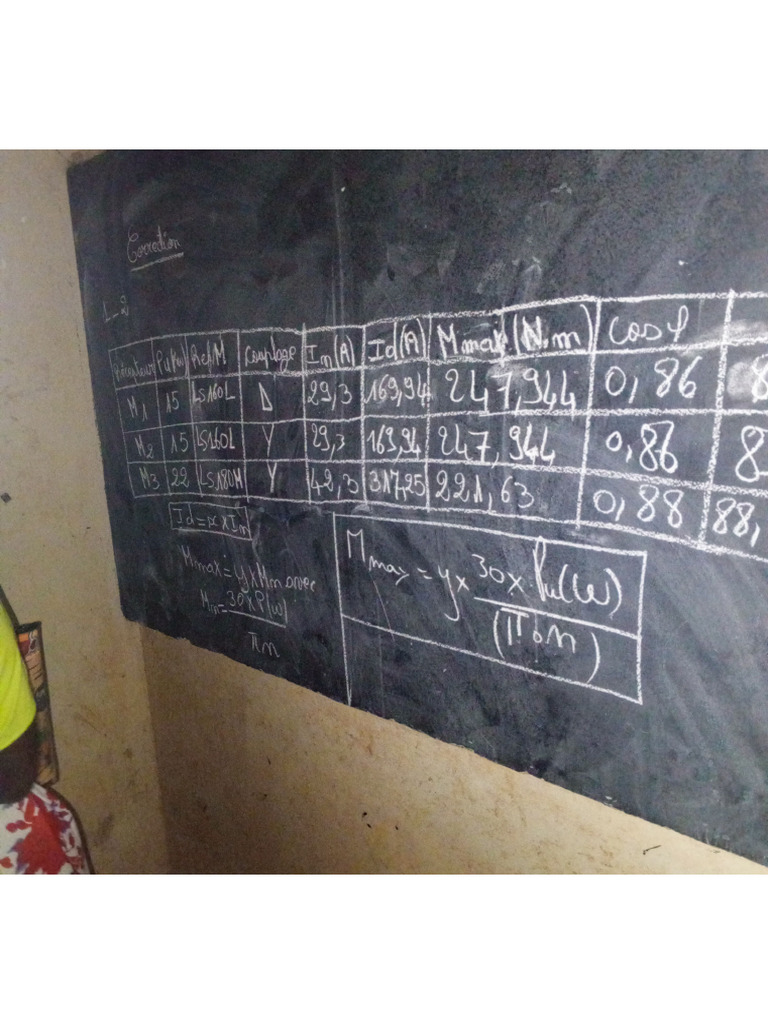 Correction
1_2
Récepteur Pu(kw) Ref M couplage In(A) Id(A) Mmax(N.m) cosφ
M1 15 LS160L Δ 29,3 169,94 247,944 0,86 8
M2 15 LS160L Y 29,3 169,94 247,944 0,86 8
M3 22 LS180M Y 42,3 317,25 221,63 0,88 88,
Id = x × In
Mmax = y × Mn avec
Mn = 30 × P(w)
πn
Mmax = y × 30 × Pu(W)
(π n)